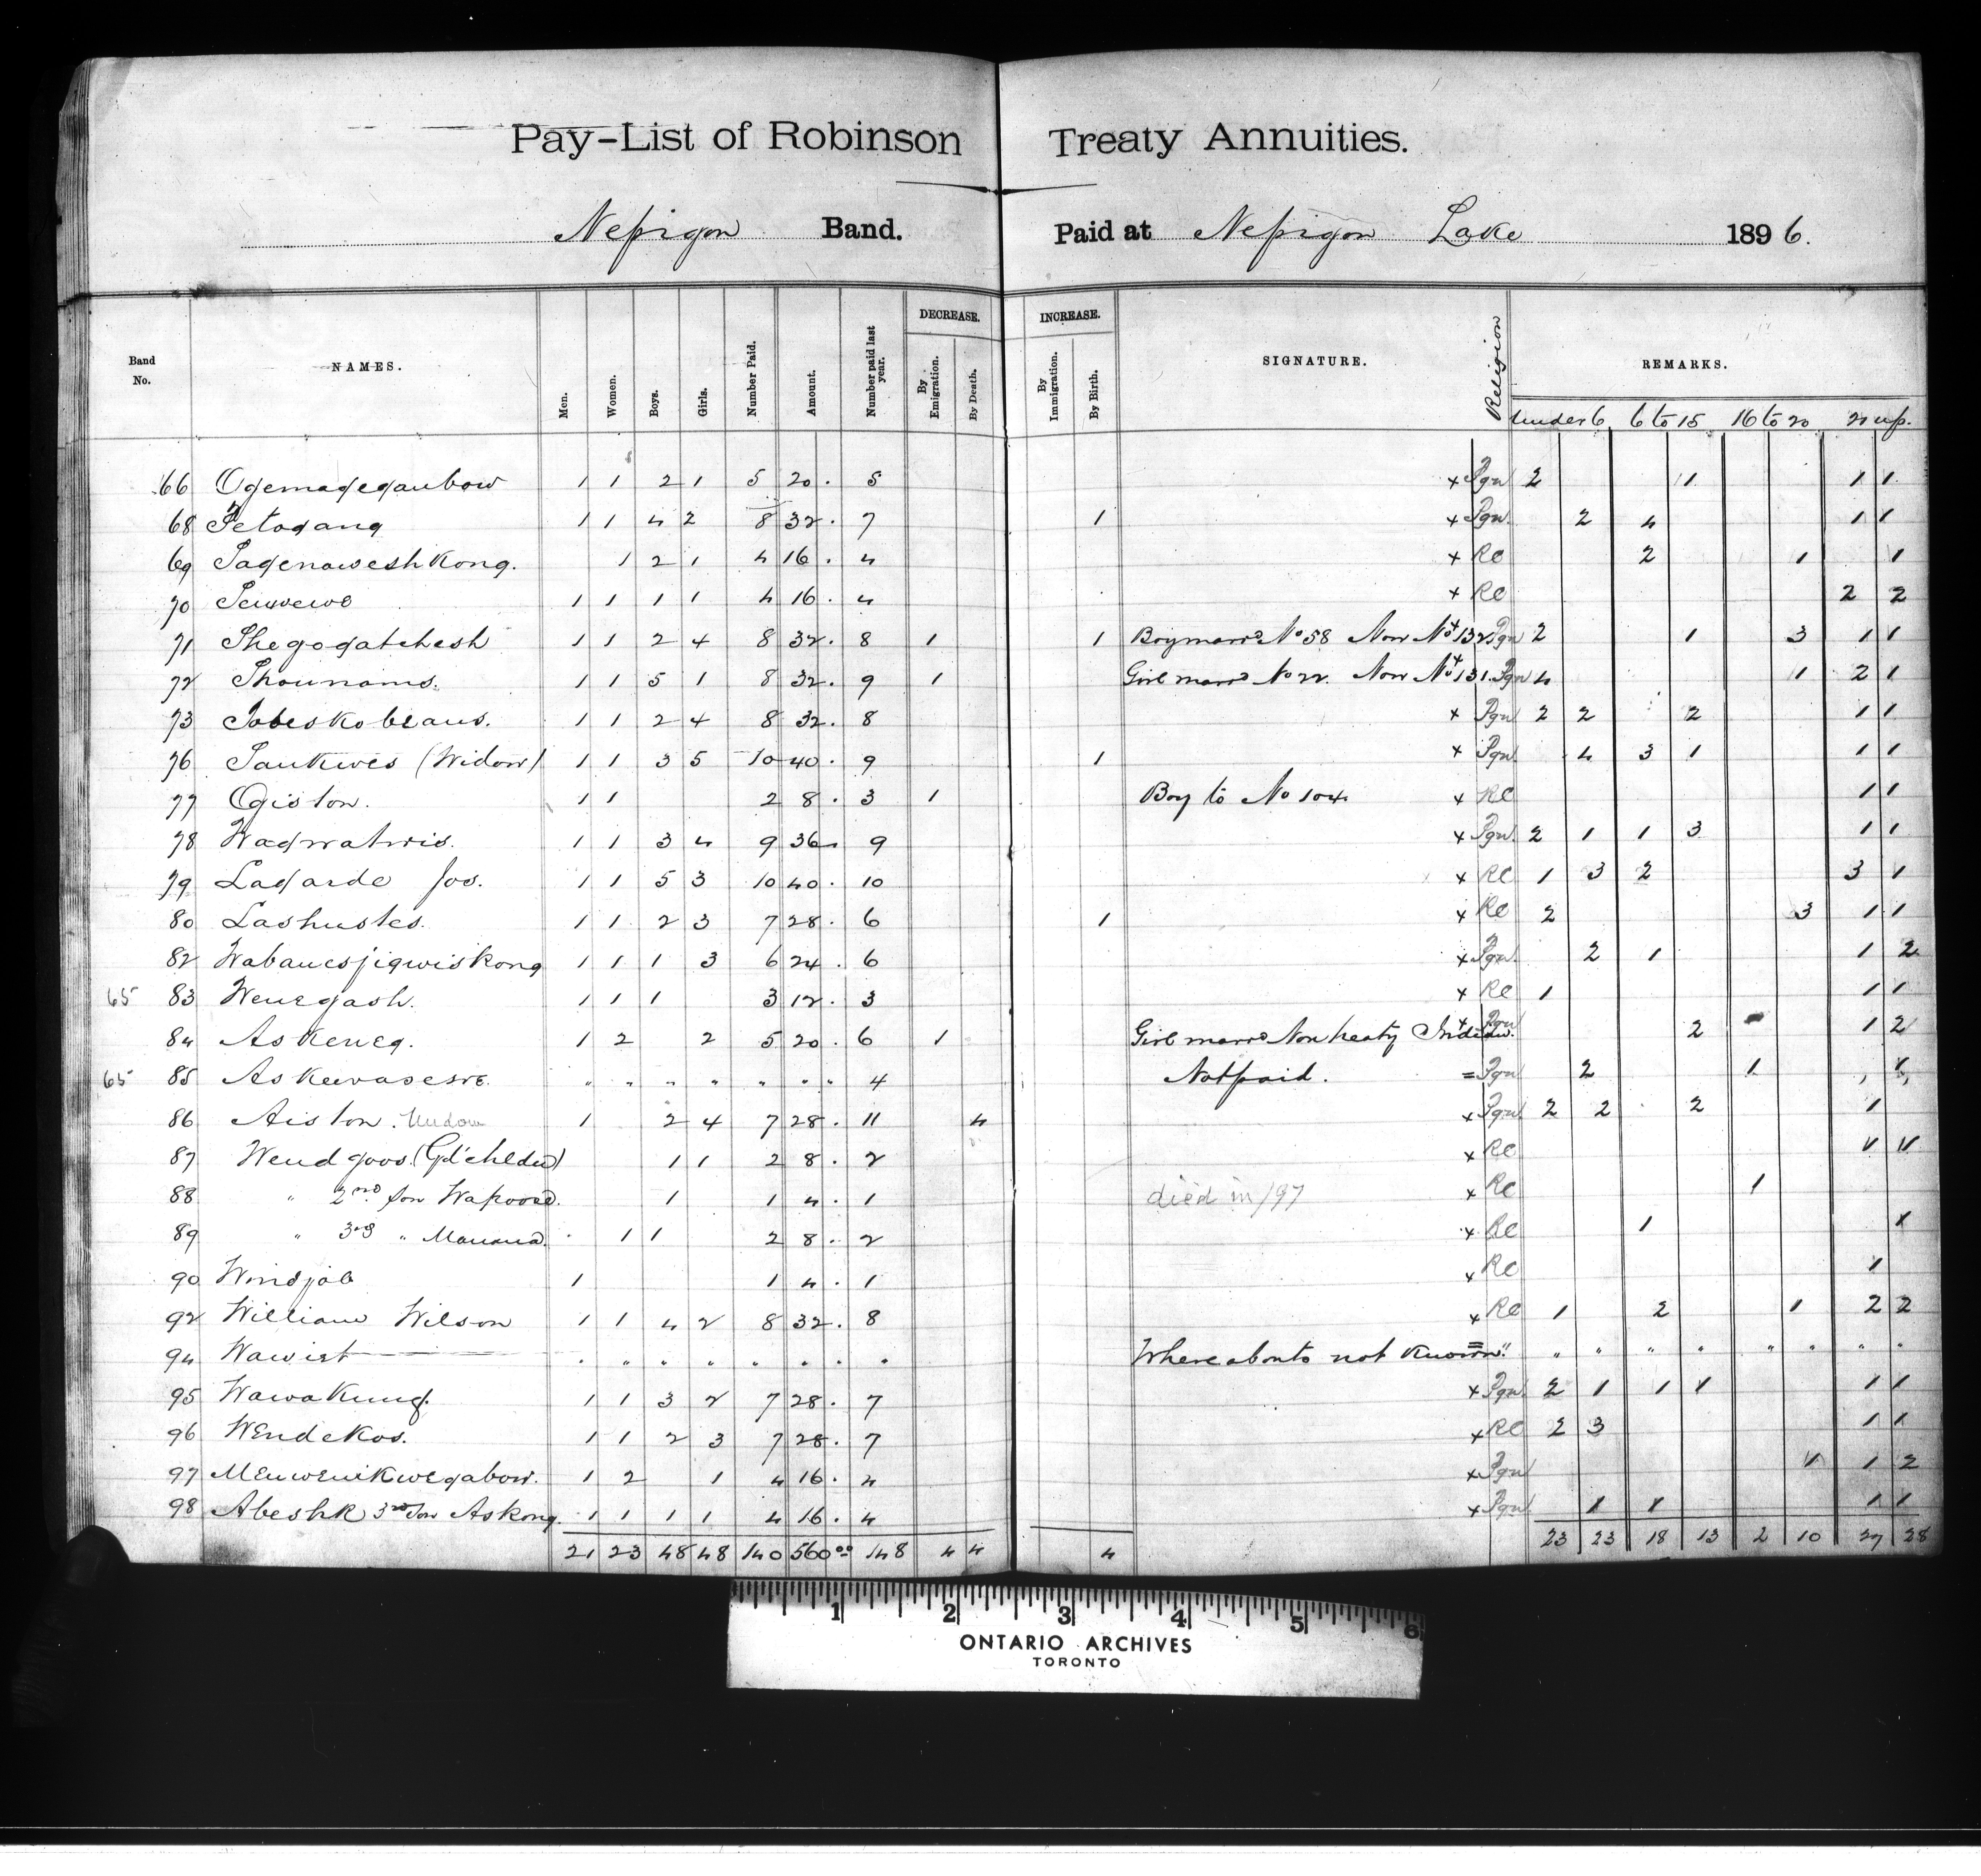 Pay-List of Robinson Treaty Annuities.
Nepigon Band. Paid at Nepigon Lake 1896.
Band No. NAMES. Men. Women. Boys. Girls. Number Paid. Amount. Number paid last year. DECREASE. By Emigration. By Death. INCREASE. By Immigration. By Birth. SIGNATURE. Religion REMARKS.
under 6 6 to 15 16 to 20 21 up.
66 Ogemagegaubow 1 1 2 1 5 20. 5 x Pgn 2 1 1 1
68 Petogang 1 1 4 2 8 32. 7 1 x Pgn 2 4 1 1
69 Pagenaweshkong. 1 2 1 4 16. 4 x RC 2 1 1
70 1 1 1 1 4 16. 4 x RC 2 2
71 Shegogatchesh 1 1 2 4 8 32. 8 1 1 Boy marrd No 58 Now No 132 x Pgn 2 1 3 1 1
72 Shounams. 1 1 5 1 8 32. 9 1 Girl marrd No 22. Now No 131. x Pgn 4 1 2 1
73 1 1 2 4 8 32. 8 x Pgn 2 2 2 1 1
76 (Widow) 1 1 3 5 10 40. 9 1 x Pgn 4 3 1 1 1
77 Ogiston. 1 1 2 8. 3 1 Boy to No 104 x RC 1 1
78 1 1 3 4 9 36. 9 x Pgn 2 1 1 3 1 1
79 Lagarde Jos. 1 1 5 3 10 40. 10 x RC 1 3 2 3 1
80 Lashustes. 1 1 2 3 7 28. 6 1 x RC 2 3 1 1
82 Wabauesjigwiskong 1 1 1 3 6 24. 6 x Pgn 2 1 1 2
65 83 Wenegash. 1 1 1 3 12. 3 x RC 1 1 1
84 Askeneg. 1 2 2 5 20. 6 1 Girl marrd Non treaty Indian. x Pgn 2 1 2
65 85 " " " " " " " 4 Not paid. = Pgn 2 1
86 Aiston. Widow 1 2 4 7 28. 11 4 x Pgn 2 2 2 1
87 Wendgoos (Gd'children) 1 1 2 8. 2 x RC 1 1
88 " 2nd Son Wapoose. 1 1 4. 1 died in /97 x RC 1
89 " 3rd " 1 1 2 8. 2 x RC 1 1
90 Windjob 1 1 4. 1 x RC 1
92 William Wilson 1 1 4 2 8 32. 8 x RC 1 2 1 2 2
94 Wawiet " " " " " " " " Whereabouts not known = " " " " " " " " "
95 Wawakung. 1 1 3 2 7 28. 7 x Pgn 2 1 1 1 1 1
96 Wendekos. 1 1 2 3 7 28. 7 x RC 2 3 1 1
97 Menwenikwegabow. 1 2 1 4 16. 4 x Pgn 1 1 2
98 Abeshk 3rd Son Askong. 1 1 1 1 4 16. 4 x Pgn 1 1 1 1
21 23 48 48 140 560 00 148 4 4 4 23 23 18 13 2 10 27 28
1 2 3 4 5 6
ONTARIO ARCHIVES
TORONTO